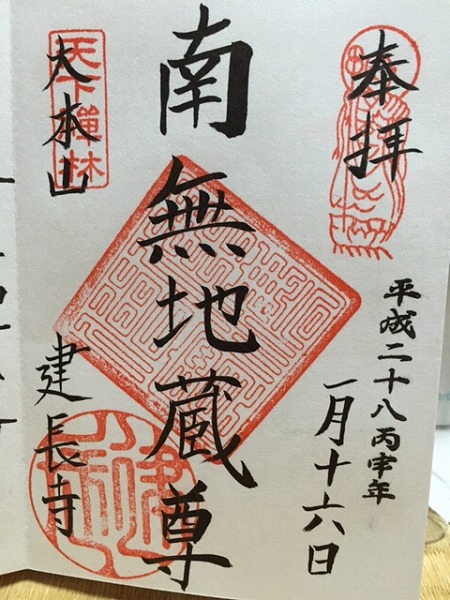 奉拝
平成二十八丙申年
一月十六日
南無地蔵尊
天下禪林
大本山
建長寺